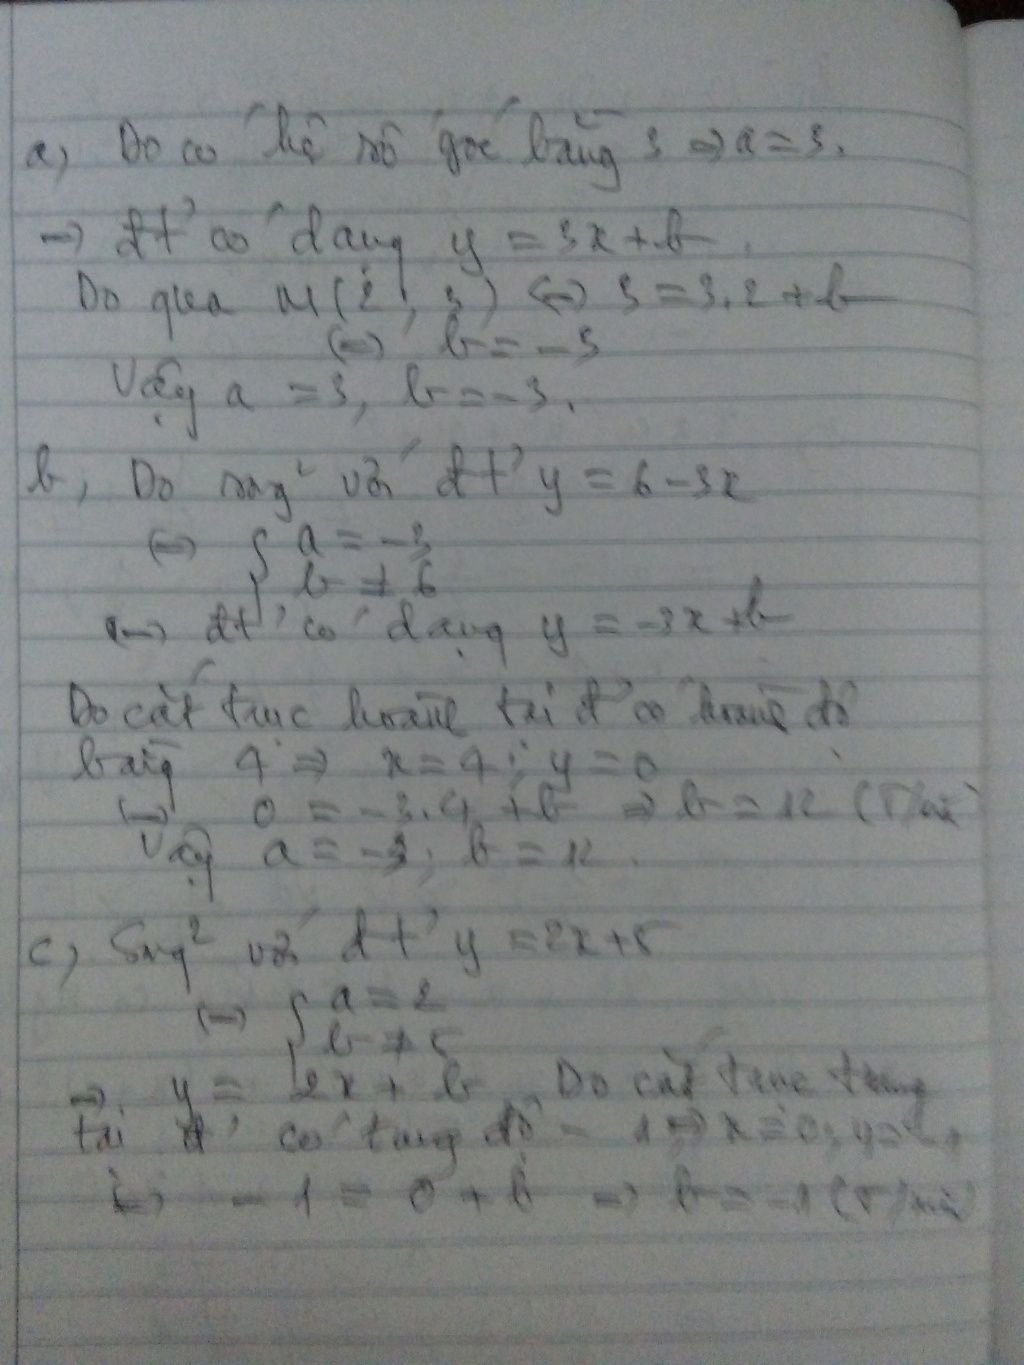 a, Do có hệ số góc bằng 3 => a = 3.
=> đt' có dạng y = 3x + b.
Do qua M(2; 3) <=> 3 = 3.2 + b
<=> b = -3
Vậy a = 3, b = -3.
b, Do song² với đt' y = 6 - 3x
<=> { a = -3
b ≠ 6
=> đt' có dạng y = -3x + b
Do cắt trục hoành tại đ' có hoành độ
bằng 4 => x = 4; y = 0
<=> 0 = -3.4 + b => b = 12 (T/m)
Vậy a = -3; b = 12.
c, Sog² với đt' y = 2x + 5
<=> { a = 2
b ≠ 5
=> y = 2x + b. Do cắt trục tung
tại đ' có tung độ - 1 => x = 0; y = -1
<=> - 1 = 0 + b => b = -1 (T/m)